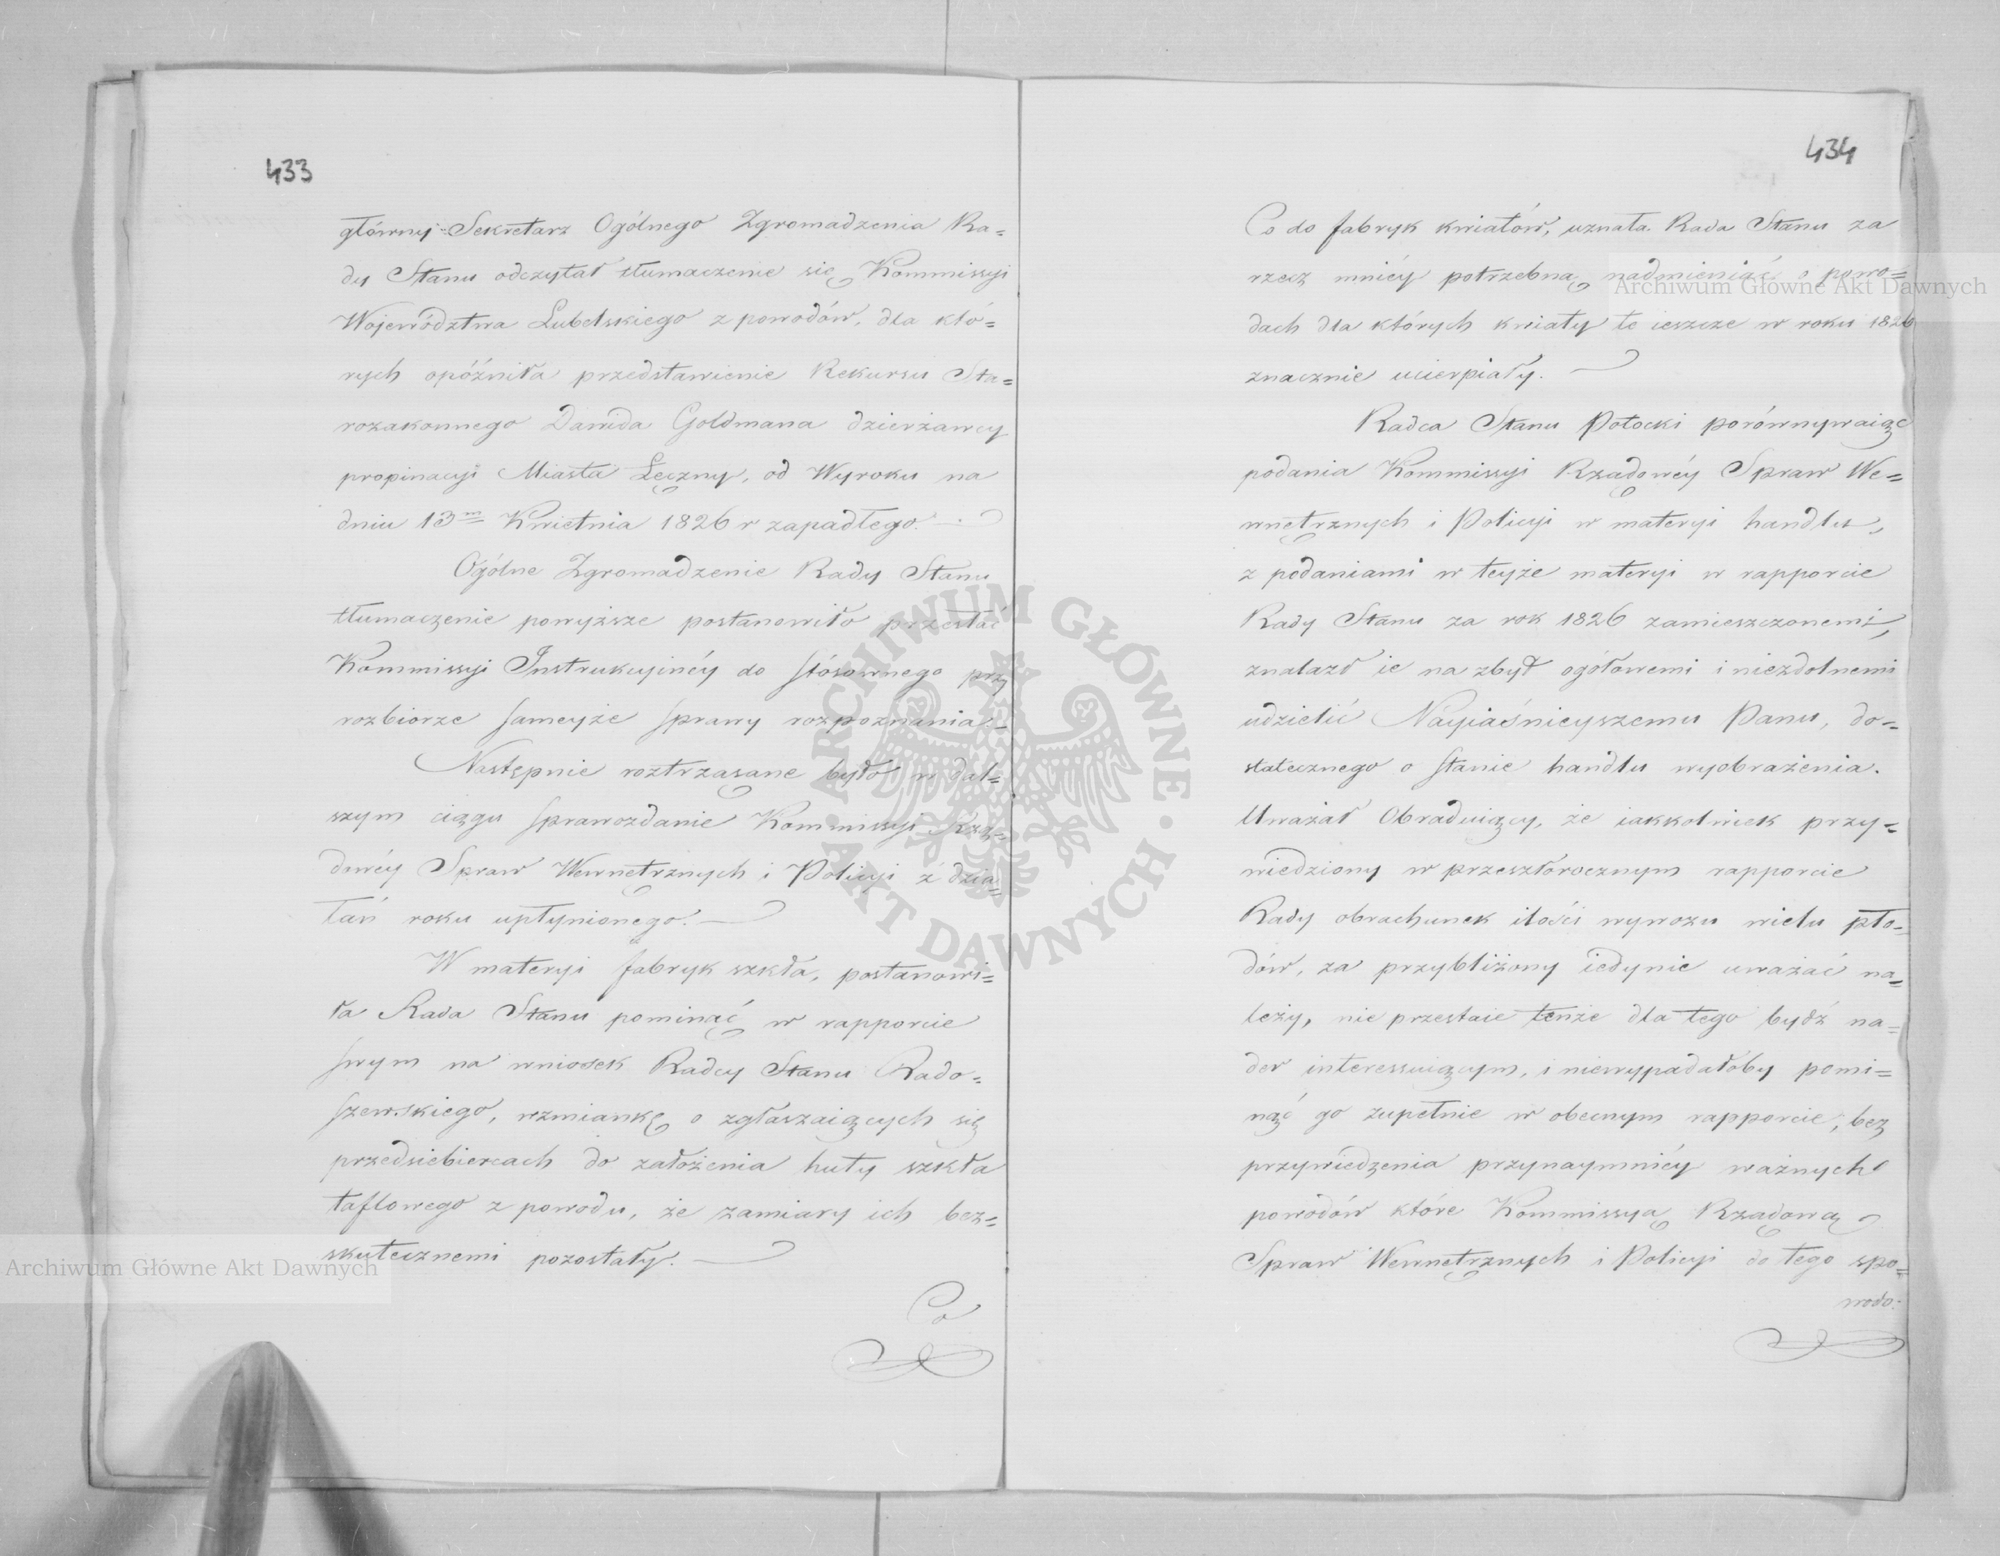 433
główny Sekretarz Ogólnego Zgromadzenia Ra=
dy Stanu odczytał tłumaczenie się Kommissyi
Województwa Lubelskiego z powodów, dla któ=
rych opóźniła przedstawienie Rekursu Sta=
rozakonnego Dawida Goldmana dzierżawcy
propinacyi Miasta Łęczny, od Wyroku na
dniu 13m Kwietnia 1826 r zapadłego. —
Ogólne Zgromadzenie Rady Stanu
tłumaczenie powyższe postanowiło przesłać
Kommissyi Instrukcyinéy do stósownego przy
rozbiorze sameyże sprawy rozpoznania. —
Następnie roztrząsane było w dal=
szym ciągu sprawozdanie Kommissyi Rzą=
dowéy Spraw Wewnętrznych i Policyi z dzia=
łań roku upłynionego. —
W materyi fabryk szkła, postanowi=
ła Rada Stanu pominąć w rapporcie
swym na wniosek Radcy Stanu Rado=
szewskiego, wzmiankę o zgłaszaiących się
przedsiebiercach do założenia huty szkła
taflowego z powodu, że zamiary ich bez=
skutecznemi pozostały. —
Co
434
Co do fabryk kwiatów, uznała Rada Stanu za
rzecz mniéy potrzebną nadmieniać o powo=
dach dla których kwiaty te ieszcze w roku 1826
znacznie ucierpiały. —
Radca Stanu Potocki porównywaiąc
podania Kommissyi Rządowéy Spraw We=
wnętrznych i Policyi w materyi handlu,
z podaniami w teyże materyi w rapporcie
Rady Stanu za rok 1826 zamieszczonemi,
znalazł ie na zbyt ogółowemi i niezdolnemi
udzielić Nayiaśnieyszemu Panu, do=
statecznego o stanie handlu wyobrażenia.
Uważał Obraduiący, że iakkolwiek przy=
wiedziony w przeszłorocznym rapporcie
Rady obrachunek ilości wywozu wielu pło=
dów, za przybliżony iedynie uważać na=
leży, nie przestaie tenże dla tego bydź na=
der interessuiącym, i niewypadałoby pomi=
nąć go zupełnie w obecnym rapporcie, bez
przywiedzenia przynaymniéy ważnych
powodów które Kommissyą Rządową
Spraw Wewnętrznych i Policyi do tego spo=
wodo:
Archiwum Główne Akt Dawnych
Archiwum Główne Akt Dawnych
ARCHIWUM GŁÓWNE AKT DAWNYCH